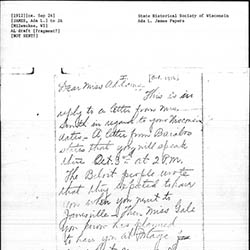 [1912][ca. Sep 26]
[JAMES, Ada L.] to Ad
[Milwaukee, WI]
AL draft [fragment?]
[NOT SENT?]
State Historical Society of Wisconsin
Ada L. James Papers
Dear Miss
This is in
reply to a letter from Mrs.
Smith in regard to your Wisconsin
dates. A letter from Baraboo
states that you will speak
there Oct 3rd at 2 P.M.
The Beloit people wrote
that they expected to have
you when you went to
Janesville. Then Miss Gale
you know has planned
to have you at Portage